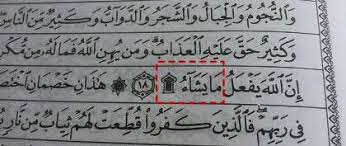 وَٱلنُّجُومُ وَٱلْجِبَالُ وَٱلشَّجَرُ وَٱلدَّوَآبُّ وَكَثِيرٌ مِّنَ ٱلنَّاسِ
وَكَثِيرٌ حَقَّ عَلَيْهِ ٱلْعَذَابُ ۗ وَمَن يُهِنِ ٱللَّهُ فَمَا لَهُۥ مِن مُّكْرِمٍ
إِنَّ ٱللَّهَ يَفْعَلُ مَا يَشَآءُ ۩ ١٨ ۞ هَٰذَانِ خَصْمَانِ
فِى رَبِّهِمْ ۖ فَٱلَّذِينَ كَفَرُوا۟ قُطِّعَتْ لَهُمْ ثِيَابٌ مِّن نَّارٍ